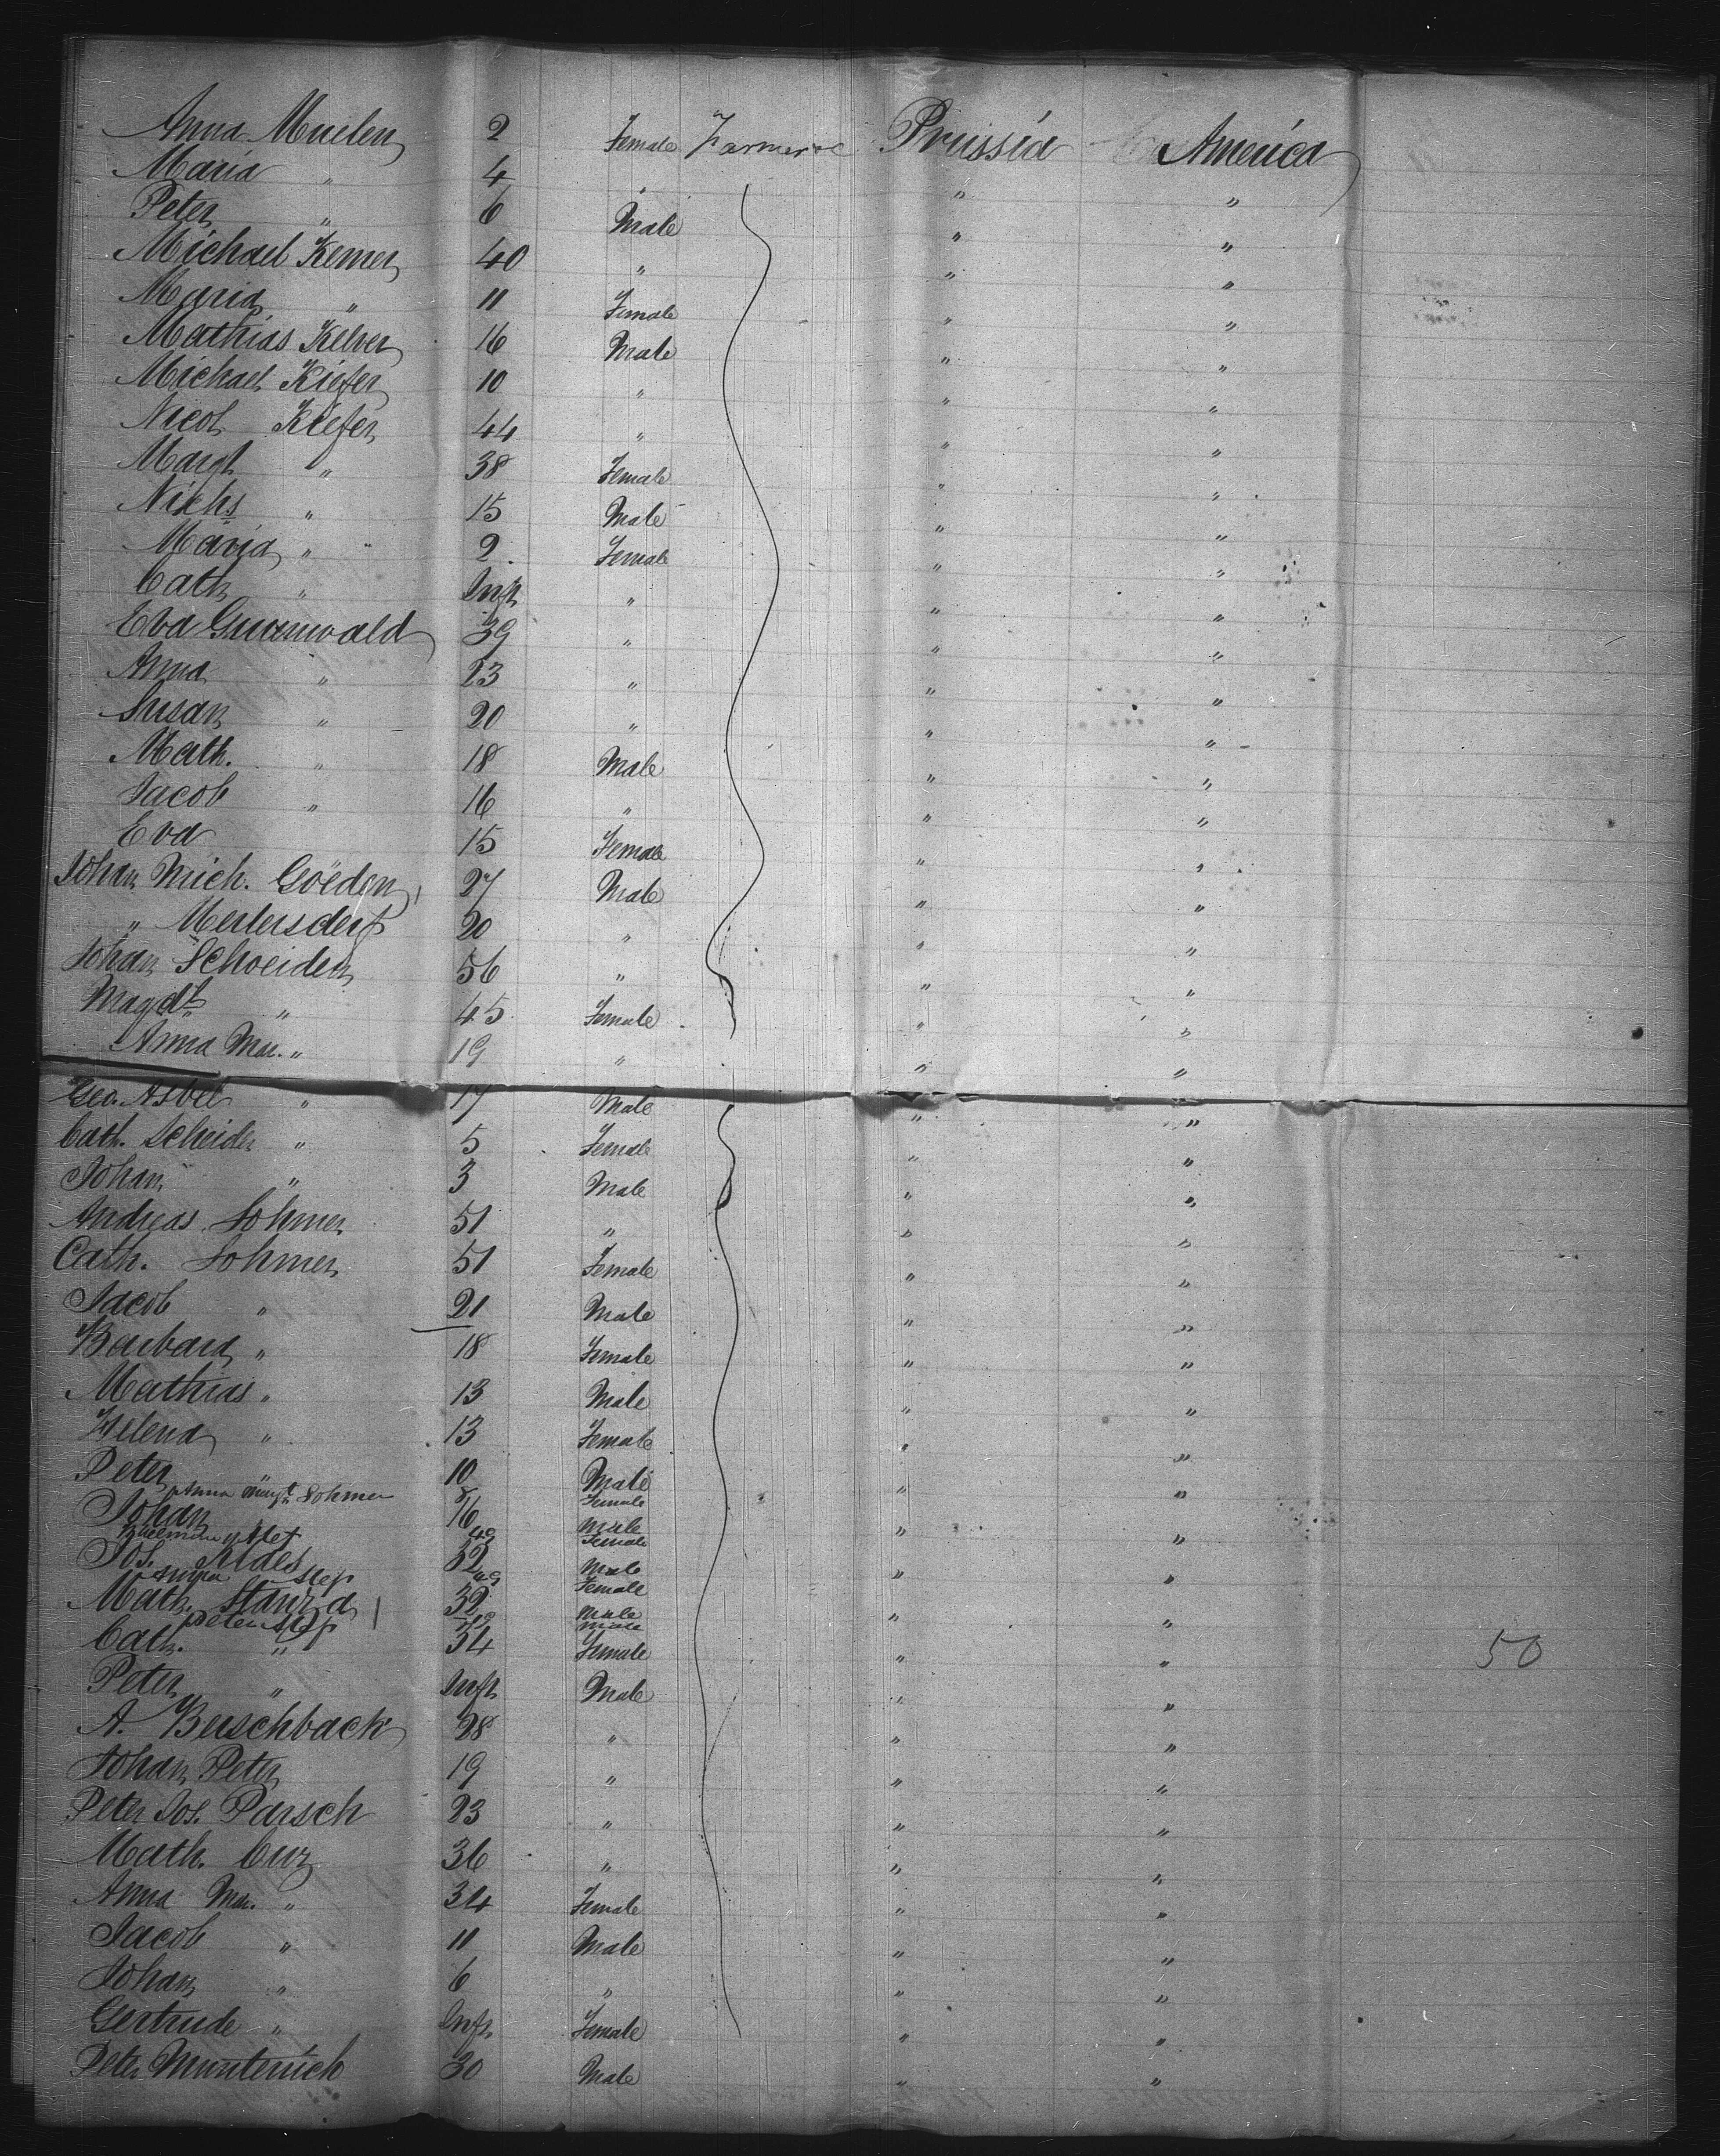 Anna Muelen 2 Female Farmer &c Prussia America
Maria " 4 " " "
Peter " 6 Male " "
Michael Kemer 40 " " "
Maria " 11 Female " "
Mathias Kelver 16 Male " "
Michael Kiefer 10 " " "
Nicol Kiefer 44 " " "
Margt " 38 Female " "
Nichs " 15 Male " "
Maria " 2 Female " "
Cath " Inft " " "
Eva Gruenwald 39 " " "
Anna " 23 " " "
Susan " 20 " " "
Math. " 18 Male " "
Jacob " 16 " " "
Eva 15 Female " "
Johan Mich. Goeden 27 Male " "
" Mertersdorf 20 " " "
Johan Schoeiden 56 " " "
Magdl " 45 Female " "
Anna Mar. " 19 " " "
Geo. Asbel " 17 Male " "
Cath. Scheider " 5 Female " "
Johan " 3 Male " "
Andreas Lohmer 51 " " "
Cath. Lohmer 51 Female " "
Jacob " 21 Male " "
Barbara " 18 Female " "
Mathias " 13 Male " "
Helena " 13 Female " "
Peter 10 Male " "
Anna Margt Lohmer 8 Female
Johan 16 Male " "
Female
Jos. 52 Male " "
Anna Step Female
Math. 32 Male " "
Peter Step Male
Cath. " 34 Female " " 50
Peter " Inft Male " "
A. Berschback 28 " " "
Johan Peter 19 " " "
Peter Jos. Parsch 23 " " "
Math. Curz 36 " " "
Anna Mar. " 34 Female " "
Jacob " 11 Male " "
Johan " 6 " " "
Gertrude " Inft Female " "
Peter Muntenich 30 Male " "